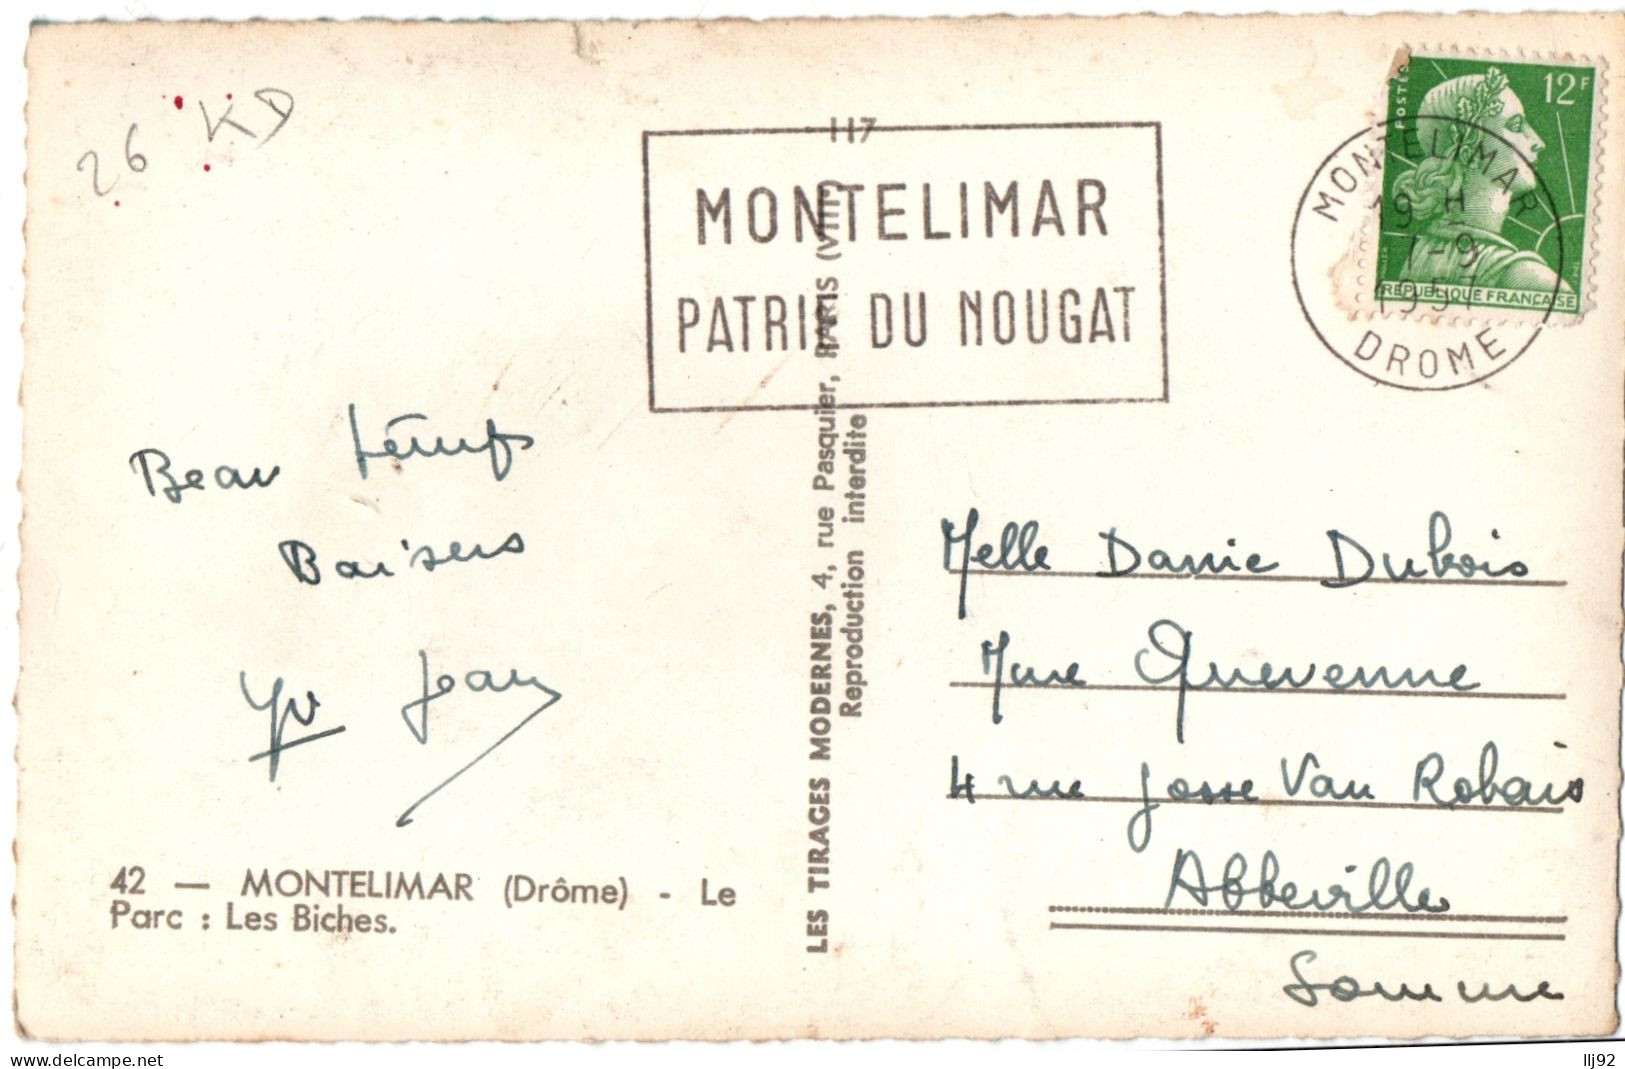 26 KD
117
MONTELIMAR
PATRIE DU NOUGAT
POSTES
12F
REPUBLIQUE FRANÇAISE
MONTELIMAR
19 H
1-9
1957
DROME
Beau temps
Baisers
Yv Jean
42 — MONTELIMAR (Drôme) - Le
Parc : Les Biches.
LES TIRAGES MODERNES, 4, rue Pasquier, PARIS (VIIIe)
Reproduction interdite
Melle Danie Dubois
Mme Quevenne
4 rue Josse Van Robais
Abbeville
Somme
www.delcampe.net
llj92